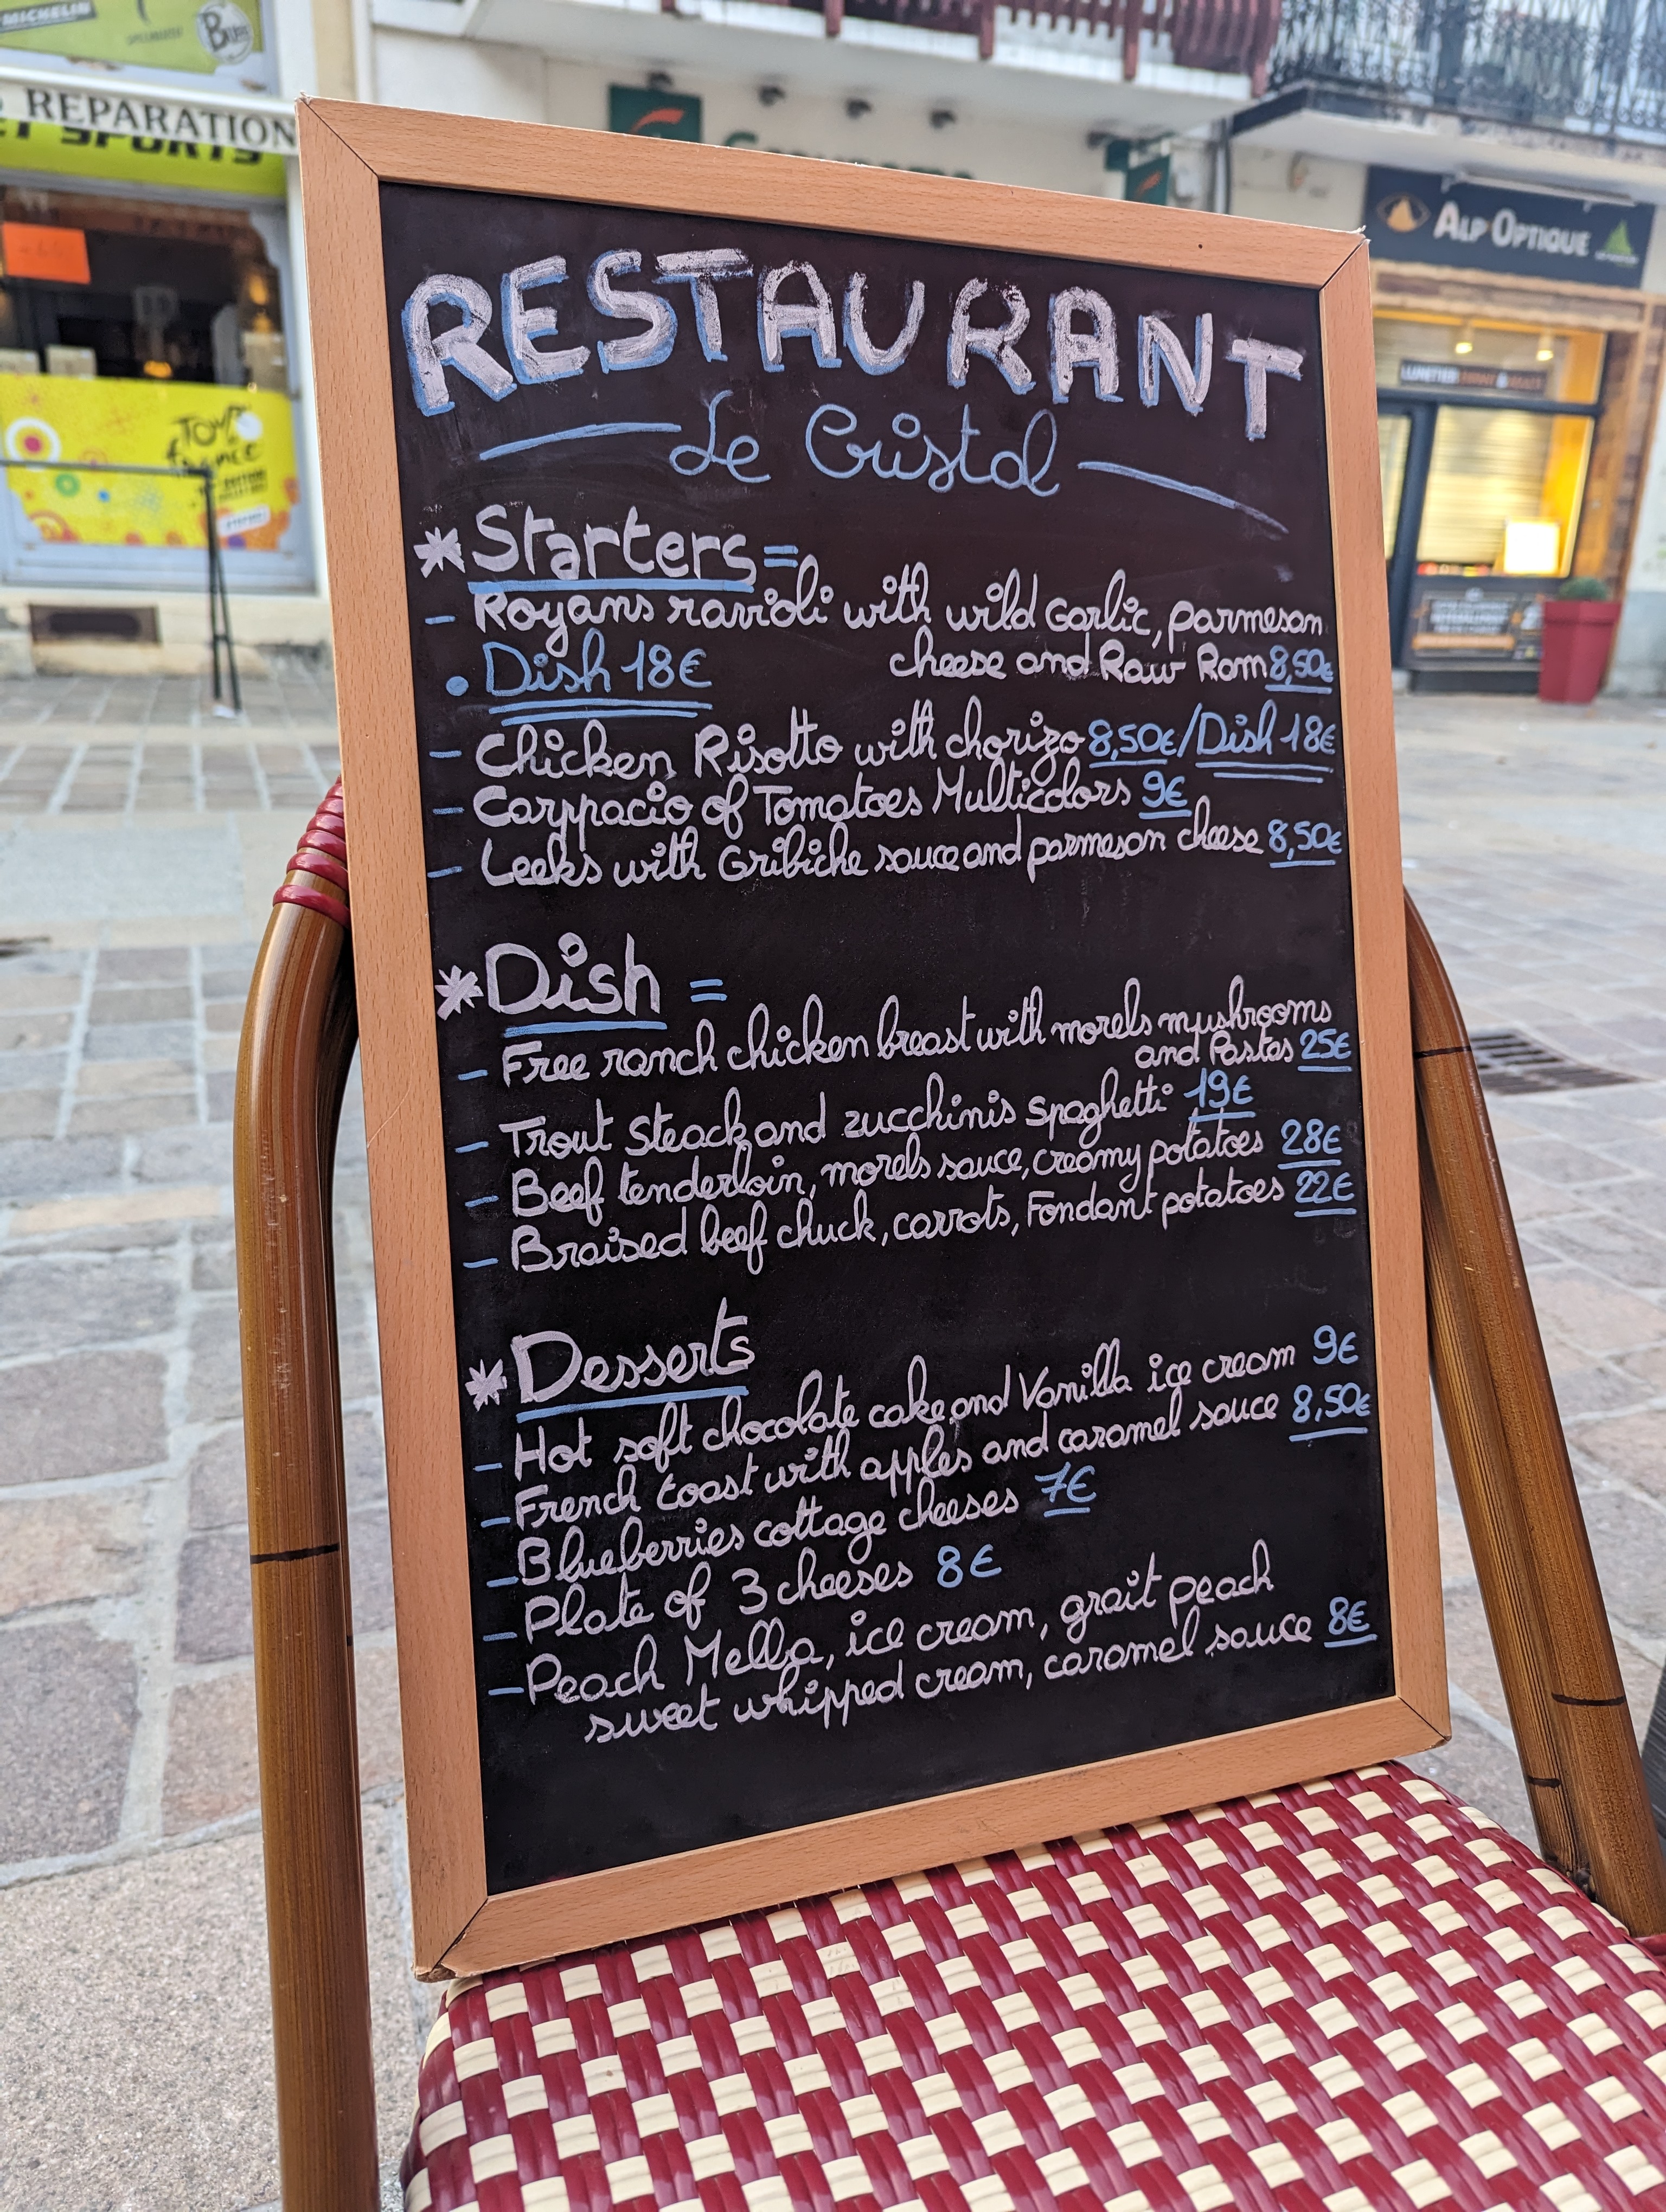 MICHELIN
REPARATION
SPORTS
TOUR
de
france
ALP OPTIQUE
RESTAURANT
Le Cristal
* Starters =
- Royans ravioli with wild Garlic, parmesan
cheese and Raw Ram 8,50€
• Dish 18€
- Chicken Risotto with chorizo 8,50€/Dish 18€
- Carppacio of Tomatoes Multicolors 9€
- Leeks with Gribiche sauce and parmesan cheese 8,50€
* Dish =
- Free ranch chicken breast with morels mushrooms
and Pastas 25€
- Trout Steack and zucchinis Spaghetti 19€
- Beef tenderloin, morels sauce, creamy potatoes 28€
- Braised beef chuck, carrots, Fondant potatoes 22€
* Desserts
- Hot soft chocolate cake and Vanilla ice cream 9€
- French toast with apples and caramel sauce 8,50€
- Blueberries cottage cheeses 7€
- Plate of 3 cheeses 8€
- Peach Melba, ice cream, grait peach
sweet whipped cream, caramel sauce 8€